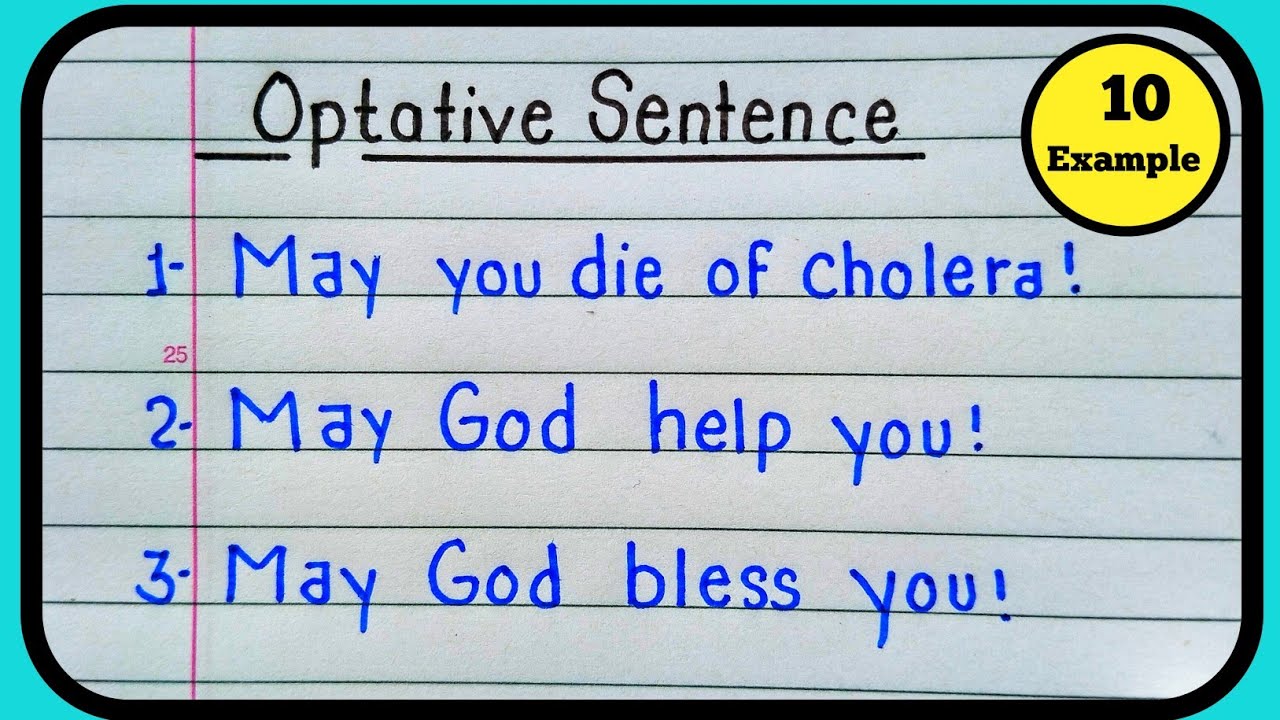 Optative Sentence
10
Example
1- May you die of cholera!
25
2- May God help you!
3- May God bless you!